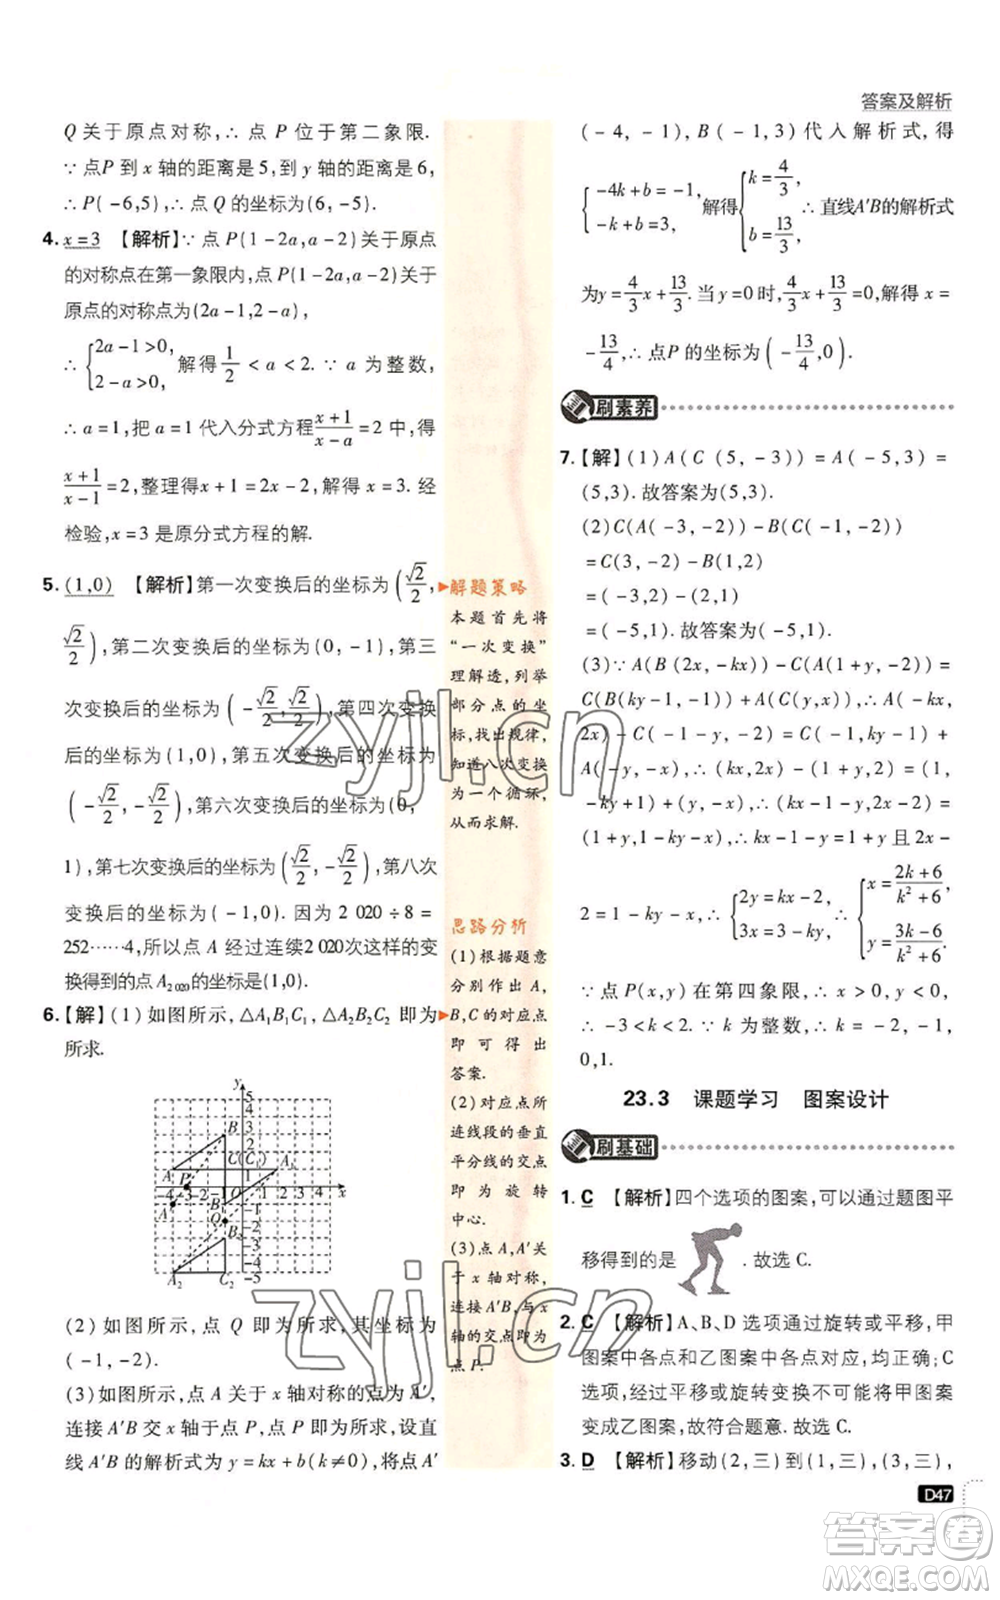 答案及解析
Q 关于原点对称,∴ 点 P 位于第二象限.
∵ 点P 到 x 轴的距离是 5,到 y 轴的距离是 6,
∴ P(-6,5),∴ 点 Q 的坐标为(6,-5).
4. x=3 【解析】∵ 点 P(1-2a,a-2)关于原点
的对称点在第一象限内,点 P(1-2a,a-2)关于
原点的对称点为(2a-1,2-a),
∴ {2a-1>0, 2-a>0, 解得 1/2 < a < 2. ∵ a 为整数,
∴ a=1,把 a=1 代入分式方程 (x+1)/(x-a)=2 中,得
(x+1)/(x-1)=2,整理得x+1=2x-2,解得 x=3. 经
检验,x=3 是原分式方程的解.
5. (1,0) 【解析】第一次变换后的坐标为(√2/2,
√2/2),第二次变换后的坐标为(0,-1),第三
次变换后的坐标为(-√2/2,√2/2),第四次变换
后的坐标为(1,0),第五次变换后的坐标为
(-√2/2,-√2/2),第六次变换后的坐标为(0,
1),第七次变换后的坐标为(√2/2,-√2/2),第八次
变换后的坐标为(-1,0). 因为 2 020÷8=
252……4,所以点 A 经过连续2 020次这样的变
换得到的点A₂₀₂₀的坐标是(1,0).
6.【解】(1)如图所示,△A₁B₁C₁,△A₂B₂C₂ 即为
所求.
y
5
4
3
2
B
C(C₁)
A
A₁
P
-4 -3 -2 1 2 3 4 x
A'
B₁
Q
-2
B₂
-3
-4
A₂ C₂ -5
(2)如图所示,点 Q 即为所求,其坐标为
(-1,-2).
(3)如图所示,点 A 关于 x 轴对称的点为 A',
连接 A'B 交 x 轴于点 P,点 P 即为所求,设直
线 A'B 的解析式为 y=kx+b(k≠0),将点 A'
解题策略
本题首先将
“一次变换”
理解透,列举
部分点的坐
标,找出规律,
知道八次变换
为一个循环,
从而求解.
思路分析
(1)根据题意
分别作出 A,
B,C的对应点
即可得出
答案.
(2)对应点所
连线段的垂直
平分线的交点
即为旋转
中心.
(3)点A,A'关
于 x 轴对称,
连接A'B,与x
轴的交点即为
点 P.
(-4,-1),B(-1,3)代入解析式,得
{-4k+b=-1, -k+b=3, 解得{k=4/3, b=13/3. ∴ 直线A'B的解析式
为y=4/3x+13/3. 当 y=0 时,4/3x+13/3=0,解得 x=
-13/4,∴ 点P 的坐标为(-13/4,0).
刷素养
7.【解】(1)A(C(5,-3))=A(-5,3)=
(5,3). 故答案为(5,3).
(2)C(A(-3,-2))-B(C(-1,-2))
=C(3,-2)-B(1,2)
=(-3,2)-(2,1)
=(-5,1). 故答案为(-5,1).
(3)∵ A(B(2x,-kx))-C(A(1+y,-2))=
C(B(ky-1,-1))+A(C(y,x)),∴ A(-kx,
2x)-C(-1-y,-2)=C(-1,ky-1)+
A(-y,-x),∴ (kx,2x)-(1+y,2)=(1,
-ky+1)+(y,-x),∴ (kx-1-y,2x-2)=
(1+y,1-ky-x),∴ kx-1-y=1+y 且 2x-
2=1-ky-x,∴ {2y=kx-2, 3x=3-ky, ∴ {x=(2k+6)/(k²+6), y=(3k-6)/(k²+6).
∵ 点 P(x,y)在第四象限,∴ {2k+6>0, 3k-6<0,
∴ -3<k<2. ∵ k 为整数,∴ k=-2,-1,
0,1.
23.3 课题学习 图案设计
刷基础
1. C 【解析】四个选项的图案,可以通过题图平
移得到的是 . 故选 C.
2. C 【解析】A、B、D 选项通过旋转或平移,甲
图案中各点和乙图案中各点对应,正确;C
选项,经过平移或旋转变换不可能将甲图案
变成乙图案,故符合题意. 故选 C.
3. D 【解析】移动(2,三)到(1,三),(3,三),
D47
zyjl.cn
zyjl.cn
答案圈
MXQE.COM